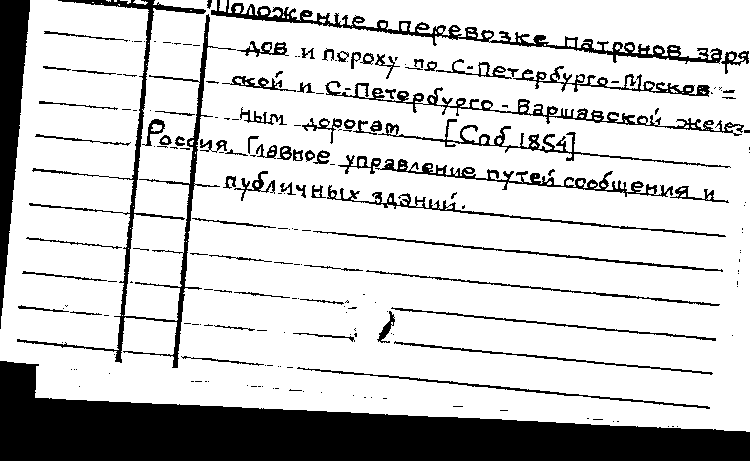 Положение о перевозке патронов, заря
дов и пороху по С-Петербурго-Москов-
ской и С.-Петербурго-Варшавской желез-
ным дорогам [Спб, 1854]
Россия. Главное управление путей сообщения и
публичных зданий.